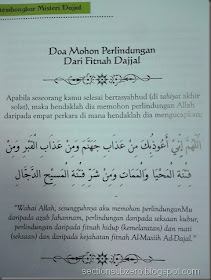 Membongkar Misteri Dajjal
Doa Mohon Perlindungan
Dari Fitnah Dajjal
Apabila seseorang kamu selesai bertasyahhud (di tahiyat akhir
solat), maka hendaklah dia memohon perlindungan Allah
daripada empat perkara di mana hendaklah dia mengucapkan:
اَللّٰهُمَّ إِنِّي أَعُوْذُبِكَ مِنْ عَذَابِ جَهَنَّمَ وَمِنْ عَذَابِ الْقَبْرِ وَمِنْ
فِتْنَةِ الْمَحْيَا وَالْمَمَاتِ وَمِنْ شَرِّ فِتْنَةِ الْمَسِيْحِ الدَّجَّالِ
"Wahai Allah, sesungguhnya aku memohon perlindunganMu
daripada azab Jahannam, perlindungan daripada seksaan kubur,
perlindungan daripada fitnah hidup (kemelaratan) dan mati
(seksaan) dan daripada kejahatan fitnah Al-Masih Ad-Dajal."
sectionsubzero.blogspot.com